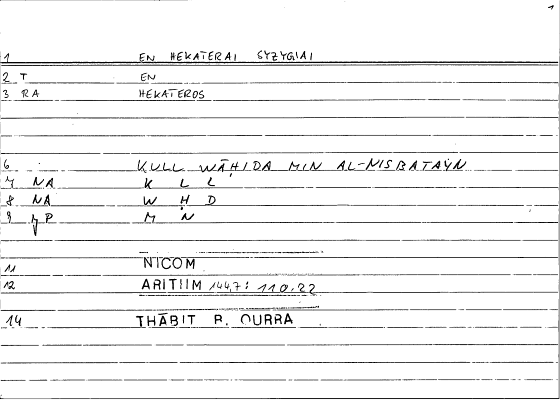 1
1 EN HEKATERAI SYZYGIAI
2 T EN
3 RA HEKATEROS
6 KULL WĀḤIDA MIN AL-NISBATAYN
7 NA K L L
8 NA W Ḥ D
9 P M N
11 NICOM
12 ARITIIM 144,7: 110.22
14 THĀBIT B. QURRA